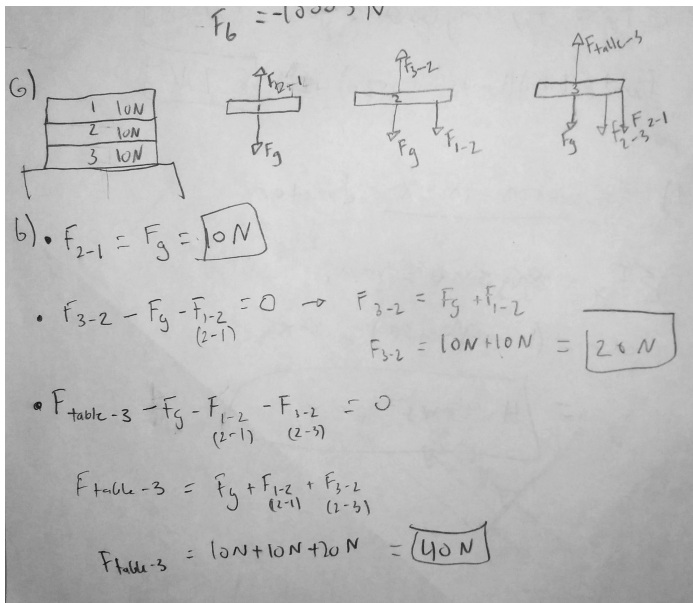 F6 = -1000
6)
1 10N
2 10N
3 10N
1
Fg
F3-2
2
Fg F1-2
Ftable-3
3
Fg F2-3 F2-1
b) • F2-1 = Fg = 10N
• F3-2 - Fg - F1-2 = 0 → F3-2 = Fg + F1-2
(2-1)
F3-2 = 10N+10N = 20N
• Ftable-3 - Fg - F1-2 - F3-2 = 0
(2-1) (2-3)
Ftable-3 = Fg + F1-2 + F3-2
(2-1) (2-3)
Ftable-3 = 10N+10N+20N = 40N